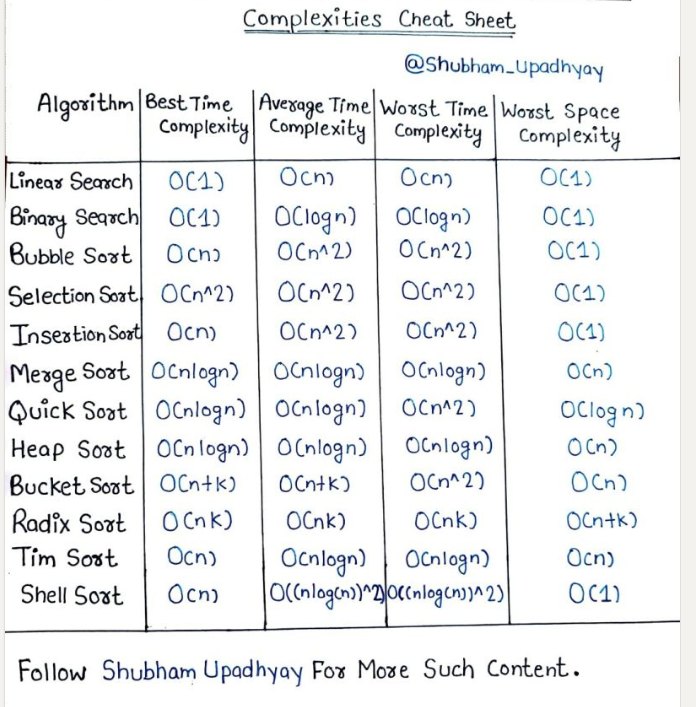 Complexities Cheat Sheet
@Shubham_Upadhyay
Algorithm Best Time Complexity Average Time Complexity Worst Time Complexity Worst Space Complexity
Linear Search O(1) O(n) O(n) O(1)
Binary Search O(1) O(logn) O(logn) O(1)
Bubble Sort O(n) O(n^2) O(n^2) O(1)
Selection Sort O(n^2) O(n^2) O(n^2) O(1)
Insertion Sort O(n) O(n^2) O(n^2) O(1)
Merge Sort O(nlogn) O(nlogn) O(nlogn) O(n)
Quick Sort O(nlogn) O(nlogn) O(n^2) O(logn)
Heap Sort O(nlogn) O(nlogn) O(nlogn) O(n)
Bucket Sort O(n+k) O(n+k) O(n^2) O(n)
Radix Sort O(nk) O(nk) O(nk) O(n+k)
Tim Sort O(n) O(nlogn) O(nlogn) O(n)
Shell Sort O(n) O((nlog(n))^2) O((nlog(n))^2) O(1)
Follow Shubham Upadhyay For More Such Content.